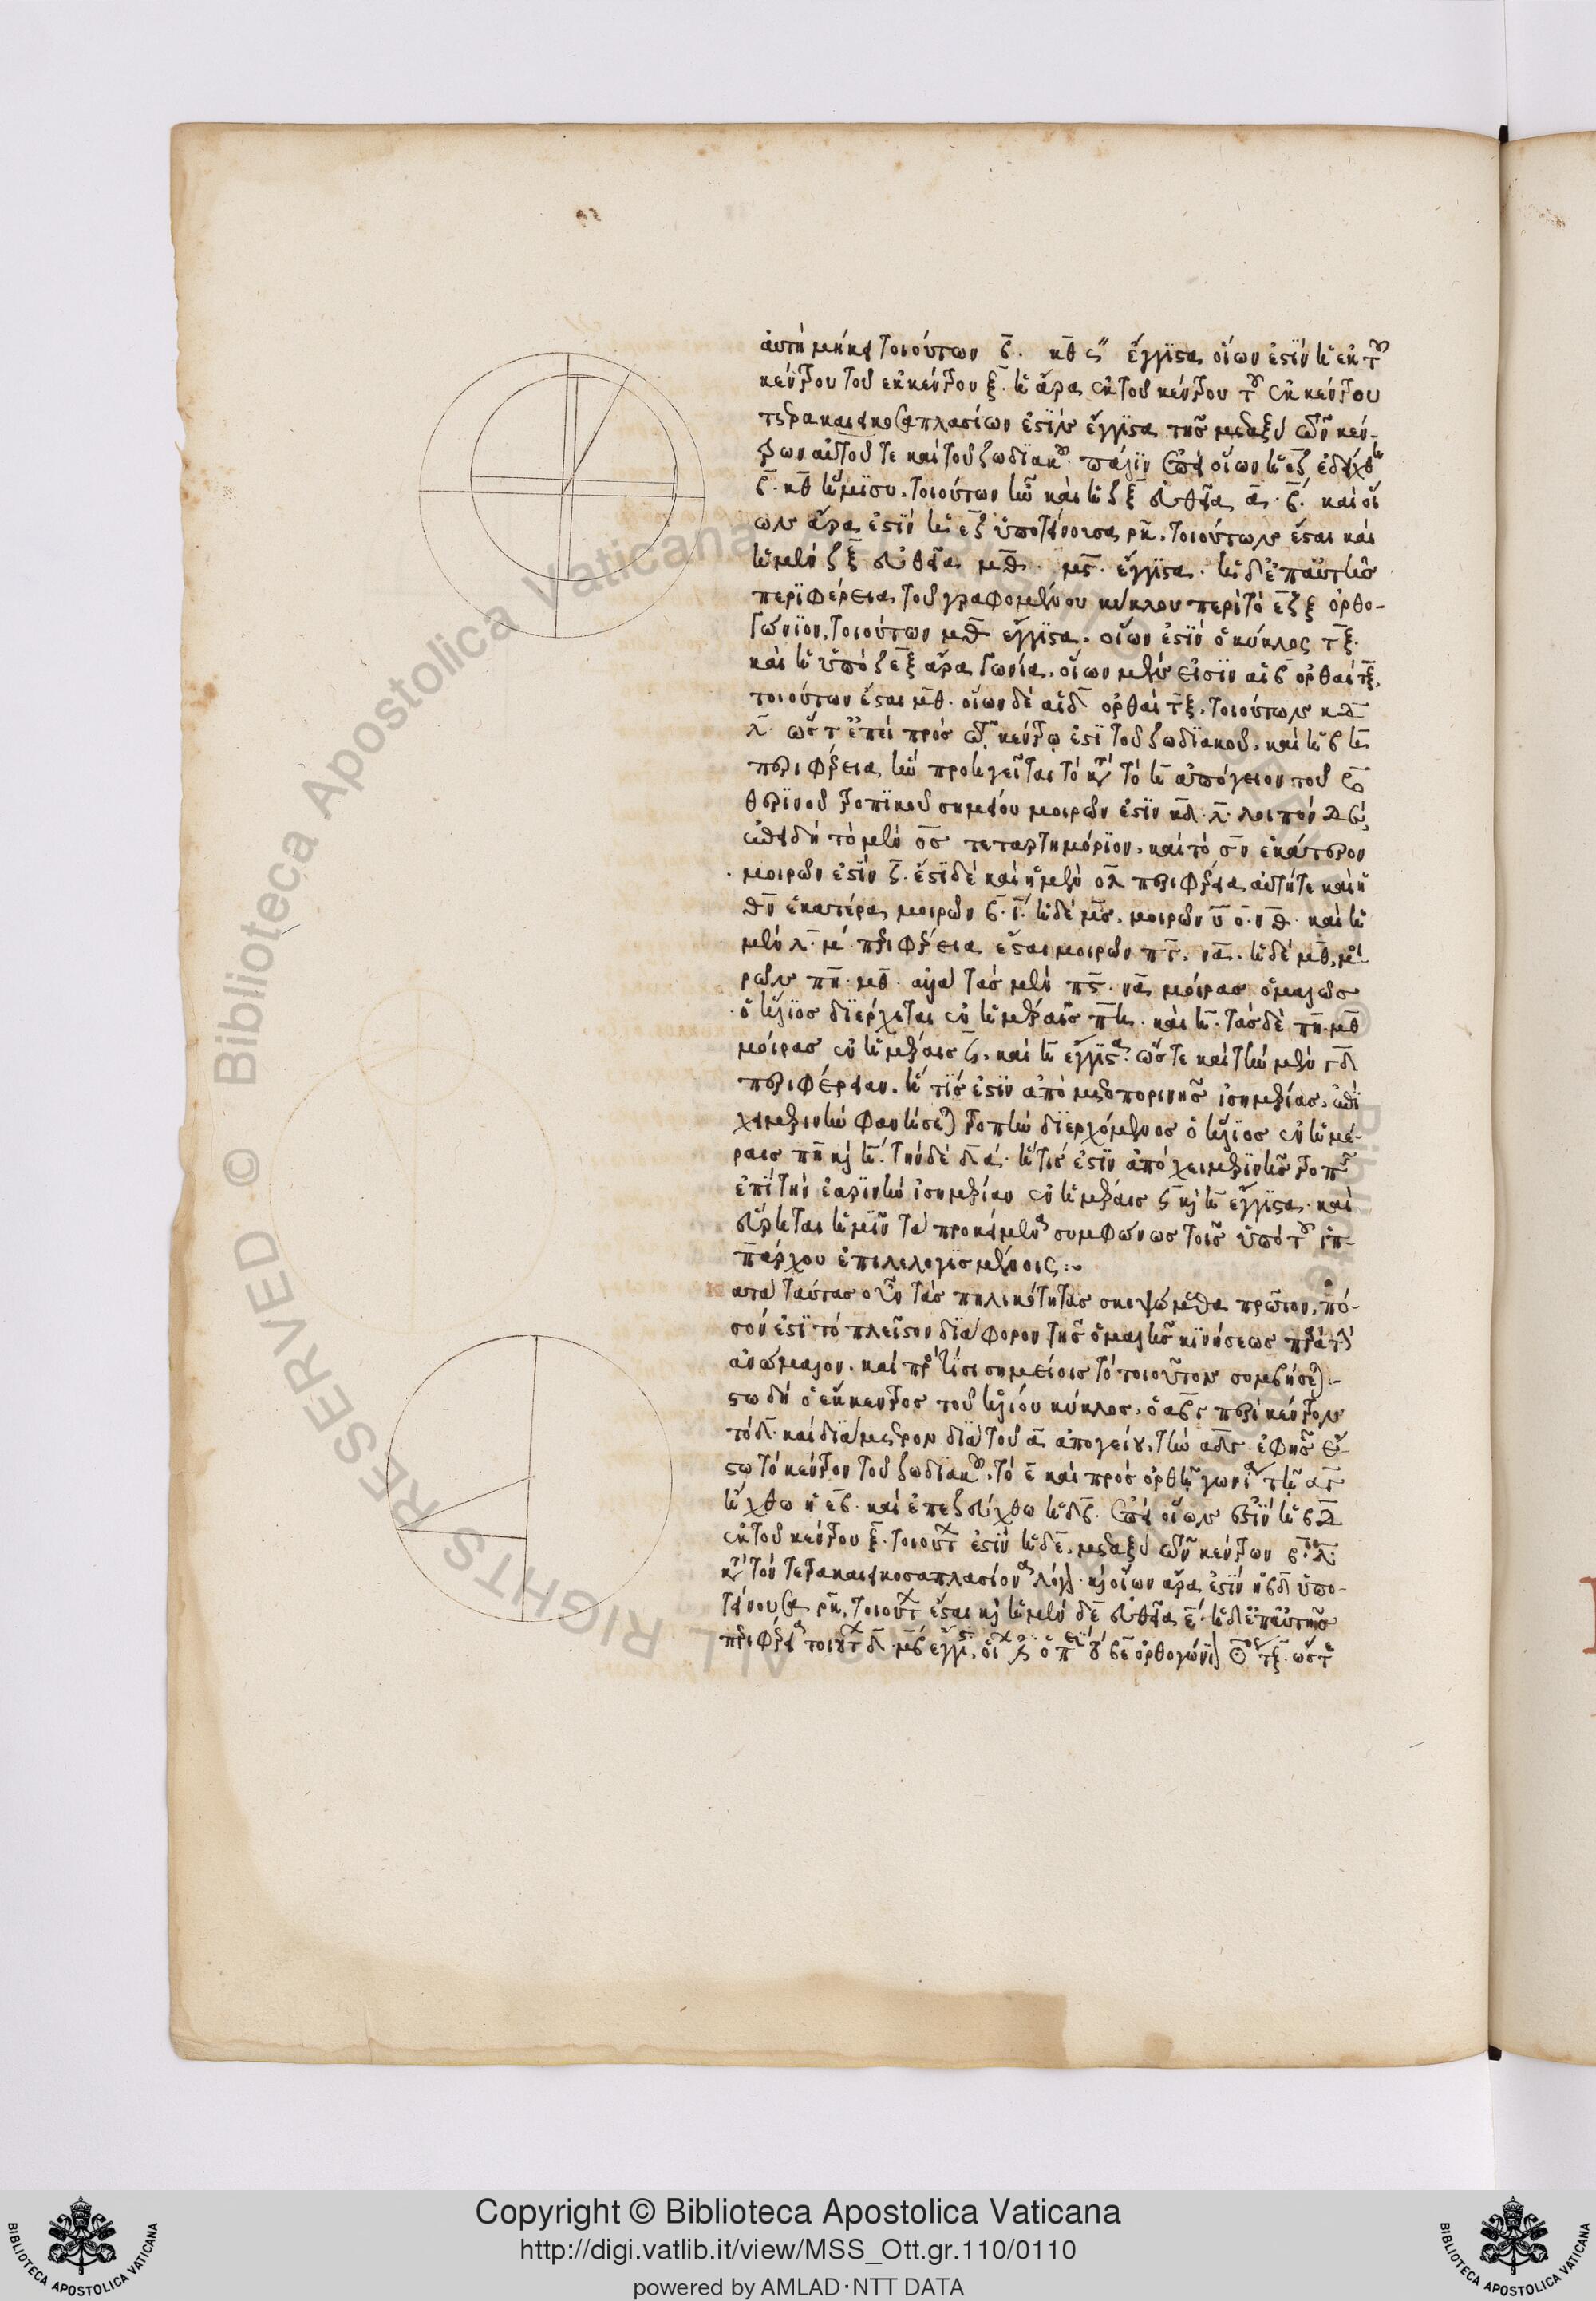 αὐτὴ μήκει τοιούτων β. κθ ϛ″ ἔγγιστα οἵων ἐστὶν ἡ ἐκ τοῦ
κέντρου τοῦ ἐκκέντρου ξ. ἡ ἄρα ἐκ τοῦ κέντρου τοῦ ἐκκέντρου
τετρακαιεικοσαπλασίων ἐστὶν ἔγγιστα τῆς μεταξὺ τῶν κέν-
τρων αὐτοῦ τε καὶ τοῦ ζωδιακοῦ. πάλιν ἐπεὶ οἵων ἡ εζ ἐδείχθη
β. κθ ἥμισυ. τοιούτων ἦν καὶ ἡ ζξ εὐθεῖα α. β. καὶ οἵ
ων ἄρα ἐστὶν ἡ εζ ὑποτείνουσα ρκ. τοιούτων ἔσται καὶ
ἡ μὲν ζξ εὐθεῖα μθ. μϛ. ἔγγιστα. ἡ δ' ἐπ' αὐτῆς
περιφέρεια τοῦ γραφομένου κύκλου περὶ τὸ εζξ ὀρθο-
γώνιον. τοιούτων μθ ἔγγιστα. οἵων ἐστὶν ὁ κύκλος τξ.
καὶ ἡ ὑπὸ ζεξ ἄρα γωνία. οἵων μέν εἰσιν αἱ β ὀρθαὶ τξ.
τοιούτων ἔσται μθ. οἵων δὲ αἱ δ ὀρθαὶ τξ. τοιούτων κδ
λ. ὥστ' ἐπεὶ πρὸς τῷ κέντρῳ ἐστὶ τοῦ ζωδιακοῦ. καὶ ἡ β η
περιφέρεια ἣν προηγεῖται τὸ κατὰ τὸ η ἀπόγειον τοῦ
θερινοῦ τροπικοῦ σημείου μοιρῶν ἐστὶν κδ. λ. λοιπὸν δέ,
ἐπειδὴ τὸ μὲν ος τεταρτημόριον. καὶ τὸ σν ἑκάτερον
μοιρῶν ἐστὶν ϟ. ἔστι δὲ καὶ ἡ μὲν ολ περιφέρεια αὐτή τε καὶ ἡ
θν ἑκατέρα μοιρῶν β. ι. ἡ δὲ μσ. μοιρῶν ο. νθ. καὶ ἡ
μὲν λ. μ. περιφέρεια ἔσται μοιρῶν πϛ. να. ἡ δὲ μθ, μοι-
ρῶν πη. μθ. ἀλλὰ τὰς μὲν πϛ. να μοίρας ὁμαλῶς
ὁ ἥλιος διέρχεται ἐν ἡμέραις πη. καὶ η. τὰς δὲ πη. μθ
μοίρας ἐν ἡμέραις ϟ. καὶ η ἔγγιστα. ὥστε καὶ τὴν μὲν γδ
περιφέρειαν. ἥ τίς ἐστιν ἀπὸ μετοπορινῆς ἰσημερίας. ἐπὶ
χειμερινὴν φανήσεται τροπὴν διερχόμενος ὁ ἥλιος ἐν ἡμέ-
ραις πη καὶ η. τὴν δὲ δα. ἥ τις ἐστὶν ἀπὸ χειμερινῆς τροπῆς
ἐπὶ τὴν ἐαρινὴν ἰσημερίαν ἐν ἡμέραις ϟ καὶ η ἔγγιστα. καὶ
εὕρηται ἡμῖν τὰ προκείμενα συμφώνως τοῖς ὑπὸ τοῦ ἱπ-
πάρχου ἐπιλελογισμένοις :~
κατὰ ταύτας οὖν τὰς πηλικότητας σκεψώμεθα πρῶτον, πό-
σον ἐστὶ τὸ πλεῖστον διάφορον τῆς ὁμαλῆς κινήσεως παρὰ τὴν
ἀνώμαλον. καὶ πρὸς τίσι σημείοις τὸ τοιοῦτον συμβήσεται :-
στω δὴ ὁ ἔκκεντρος τοῦ ἡλίου κύκλος. ὁ αβγ περὶ κέντρον
τὸ δ. καὶ διάμετρον διὰ τοῦ α ἀπογείου. τὴν αδγ. ἐφ' ἧς ἔ-
στω τὸ κέντρον τοῦ ζωδιακοῦ. τὸ ε καὶ πρὸς ὀρθὴν γωνίαν τῇ αγ
ἤχθω ἡ εβ. καὶ ἐπεζεύχθω ἡ δβ. ἐπεὶ οἵων ἐστὶν ἡ βδ
ἐκ τοῦ κέντρου ξ. τοιούτων ἐστὶν ἡ δε. μεταξὺ τῶν κέντρων β. λ.
κατὰ τὸν τετρακαιεικοσαπλασίονα λόγον. καὶ οἵων ἄρα ἐστὶν ἡ βδ ὑπο-
τείνουσα ρκ, τοιούτων ἔσται καὶ ἡ μὲν δε εὐθεῖα ε. ἡ δ' ἐπ' αὐτῆς
περιφέρεια τοιούτων δ. μϛ ἔγγιστα. οἵων ἐστὶ ὁ περὶ τὸ βδε ὀρθογώνιον κύκλος τξ. ὥστε